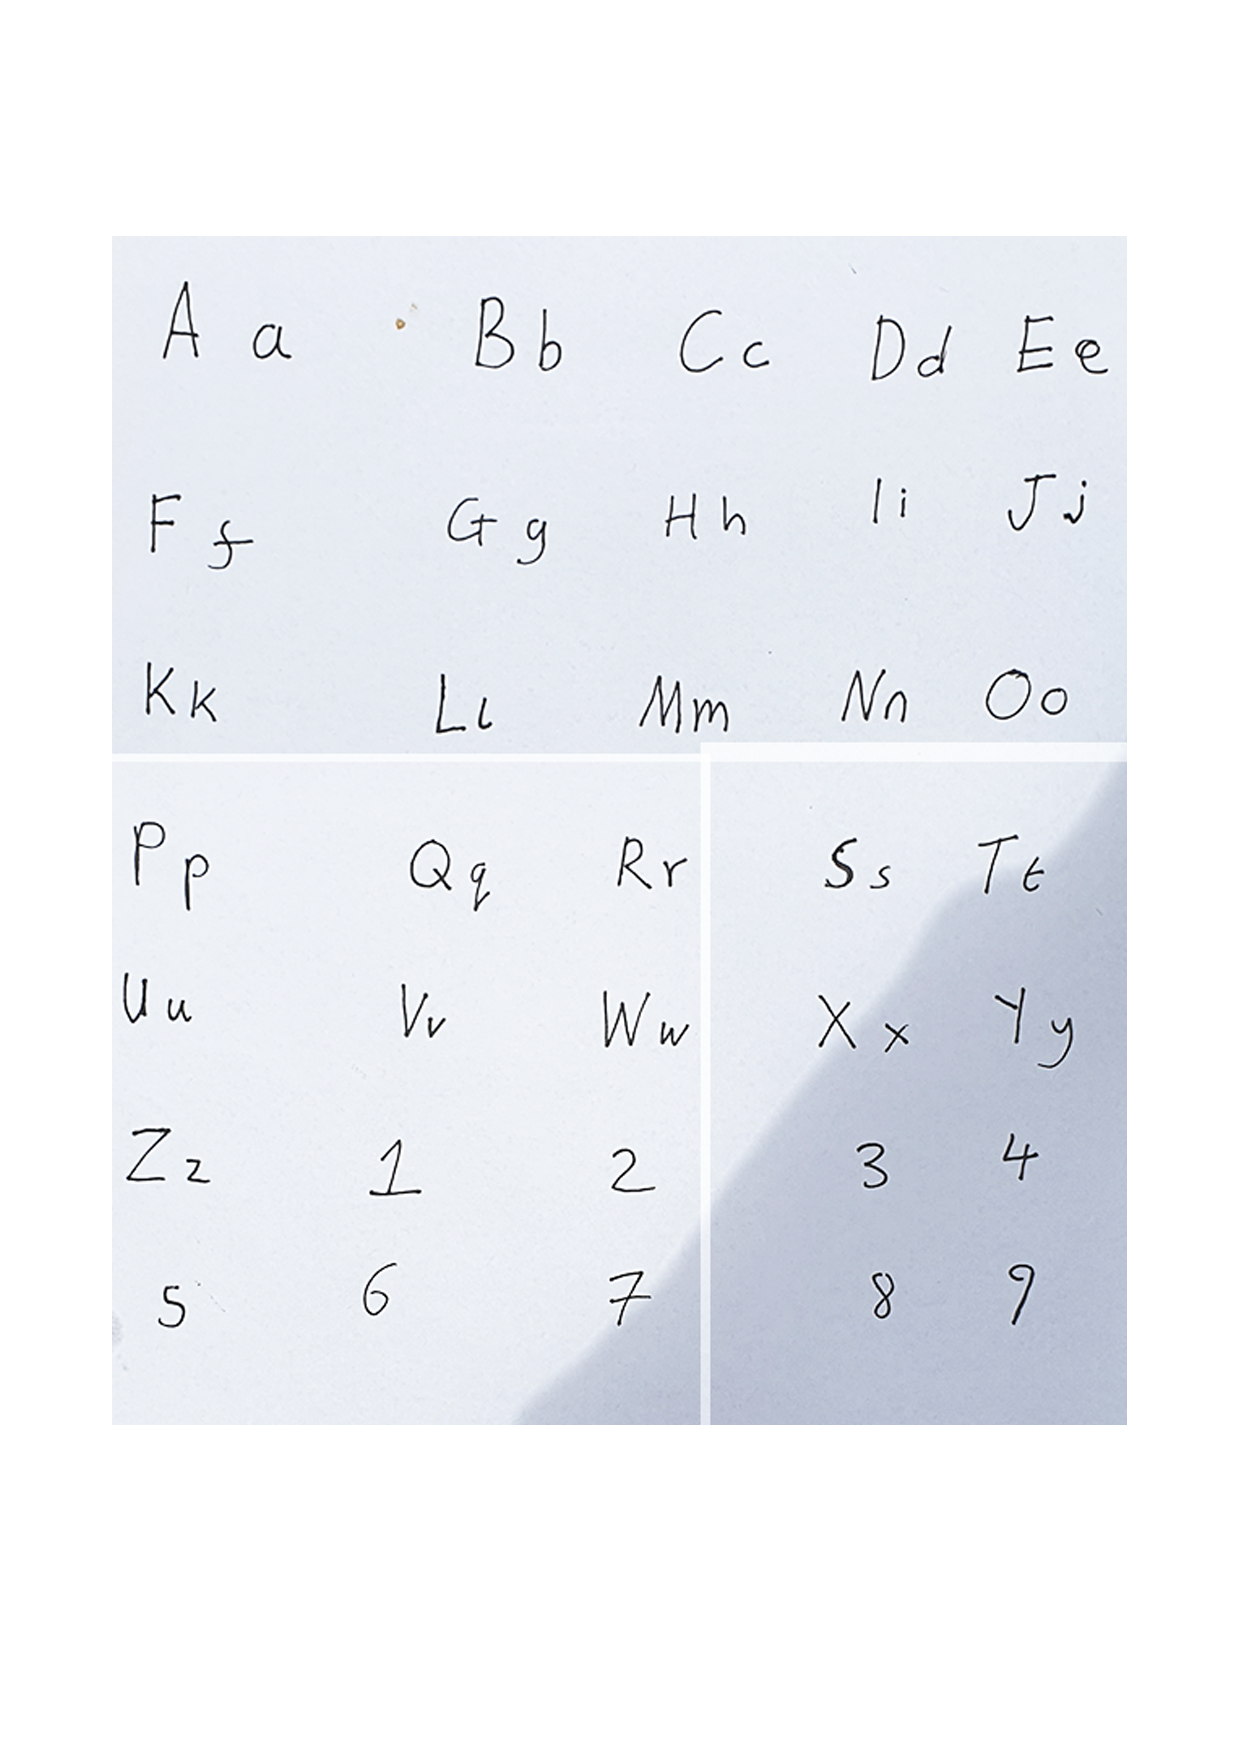 A a Bb Cc Dd Ee
F f G g H h Ii J j
Kk Ll Mm Nn Oo
P p Qq Rr Ss Tt
Uu Vv Ww X x Y y
Zz 1 2 3 4
5 6 7 8 9